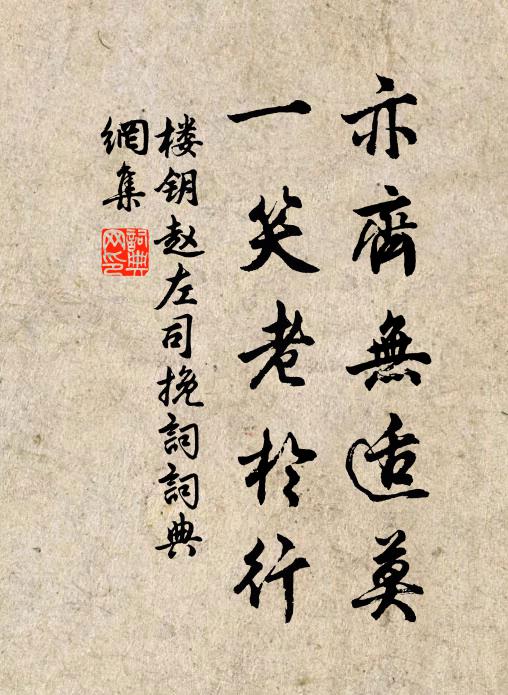 亦齊無适莫
一笑老於行
楼钥赵左司挽詞詞典
網集
詞典
网印